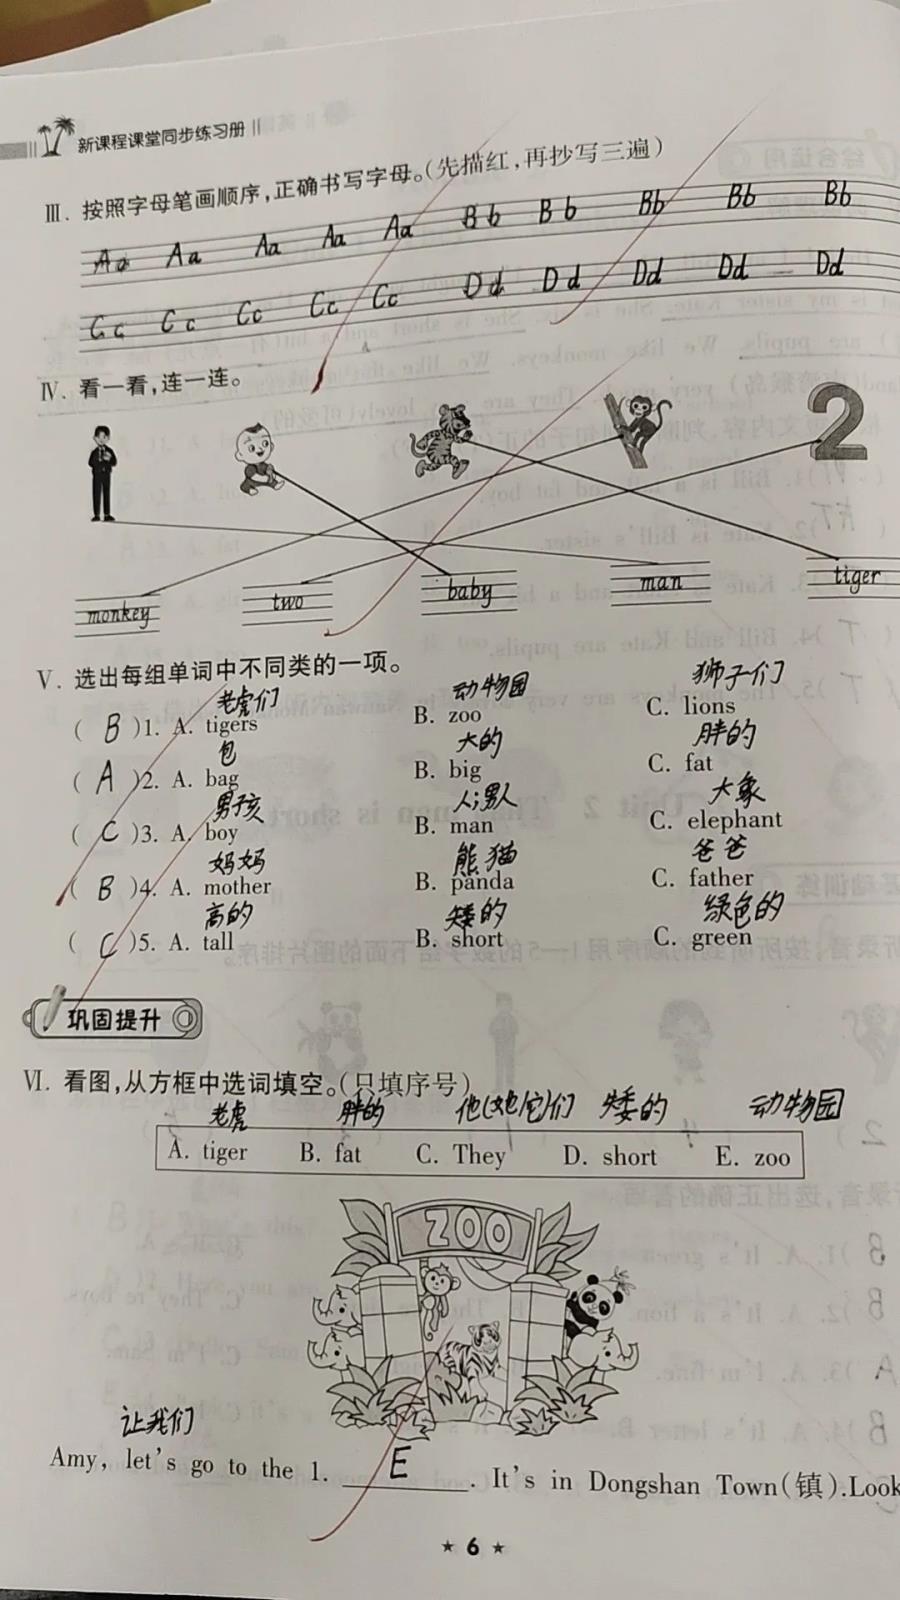 新课程课堂同步练习册
Ⅲ. 按照字母笔画顺序,正确书写字母。(先描红,再抄写三遍)
Aa Aa Aa Aa Aa Bb Bb Bb Bb Bb
Cc Cc Cc Cc Cc Dd Dd Dd Dd Dd
Ⅳ. 看一看,连一连。
2
monkey two baby man tiger
Ⅴ. 选出每组单词中不同类的一项。
老虎们 动物园 狮子们
( B )1. A. tigers B. zoo C. lions
包 大的 胖的
( A )2. A. bag B. big C. fat
男孩 人;男人 大象
( C )3. A. boy B. man C. elephant
妈妈 熊猫 爸爸
( B )4. A. mother B. panda C. father
高的 矮的 绿色的
( C )5. A. tall B. short C. green
巩固提升
Ⅵ. 看图,从方框中选词填空。(只填序号)
老虎 胖的 他(她/它)们 矮的 动物园
A. tiger B. fat C. They D. short E. zoo
ZOO
让我们
Amy, let's go to the 1. E . It's in Dongshan Town(镇).Look
★ 6 ★